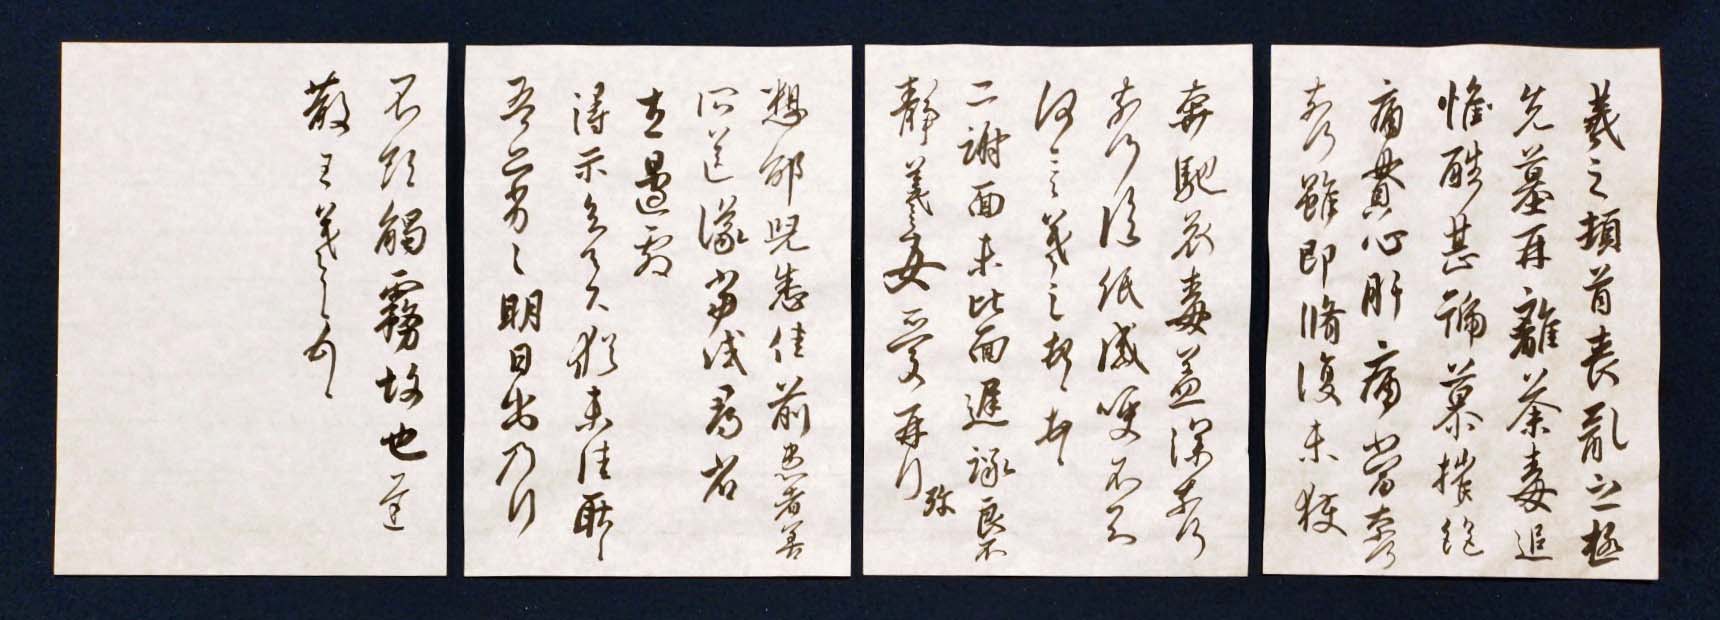 羲之頓首喪亂之極
先墓再離荼毒追
惟酷甚號慕摧絶
痛貫心肝痛當奈何
奈何雖即脩復未獲
奔馳哀毒益深奈何
奈何臨紙感哽不知
何言羲之頓首頓首
二謝面未比面遲詠良不
靜羲之女愛再拜
想邵兒悉佳前患者善
所送議當試尋省
左邊劇
得示知足下猶未佳耿耿
吾亦劣劣明日出乃行
不欲觸霧故也遲
散王羲之頓首